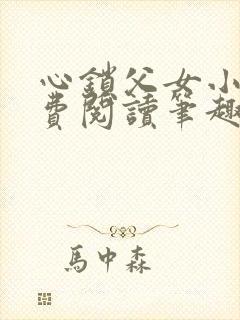 心鎖父女小
費閱讀筆趣
馬中森